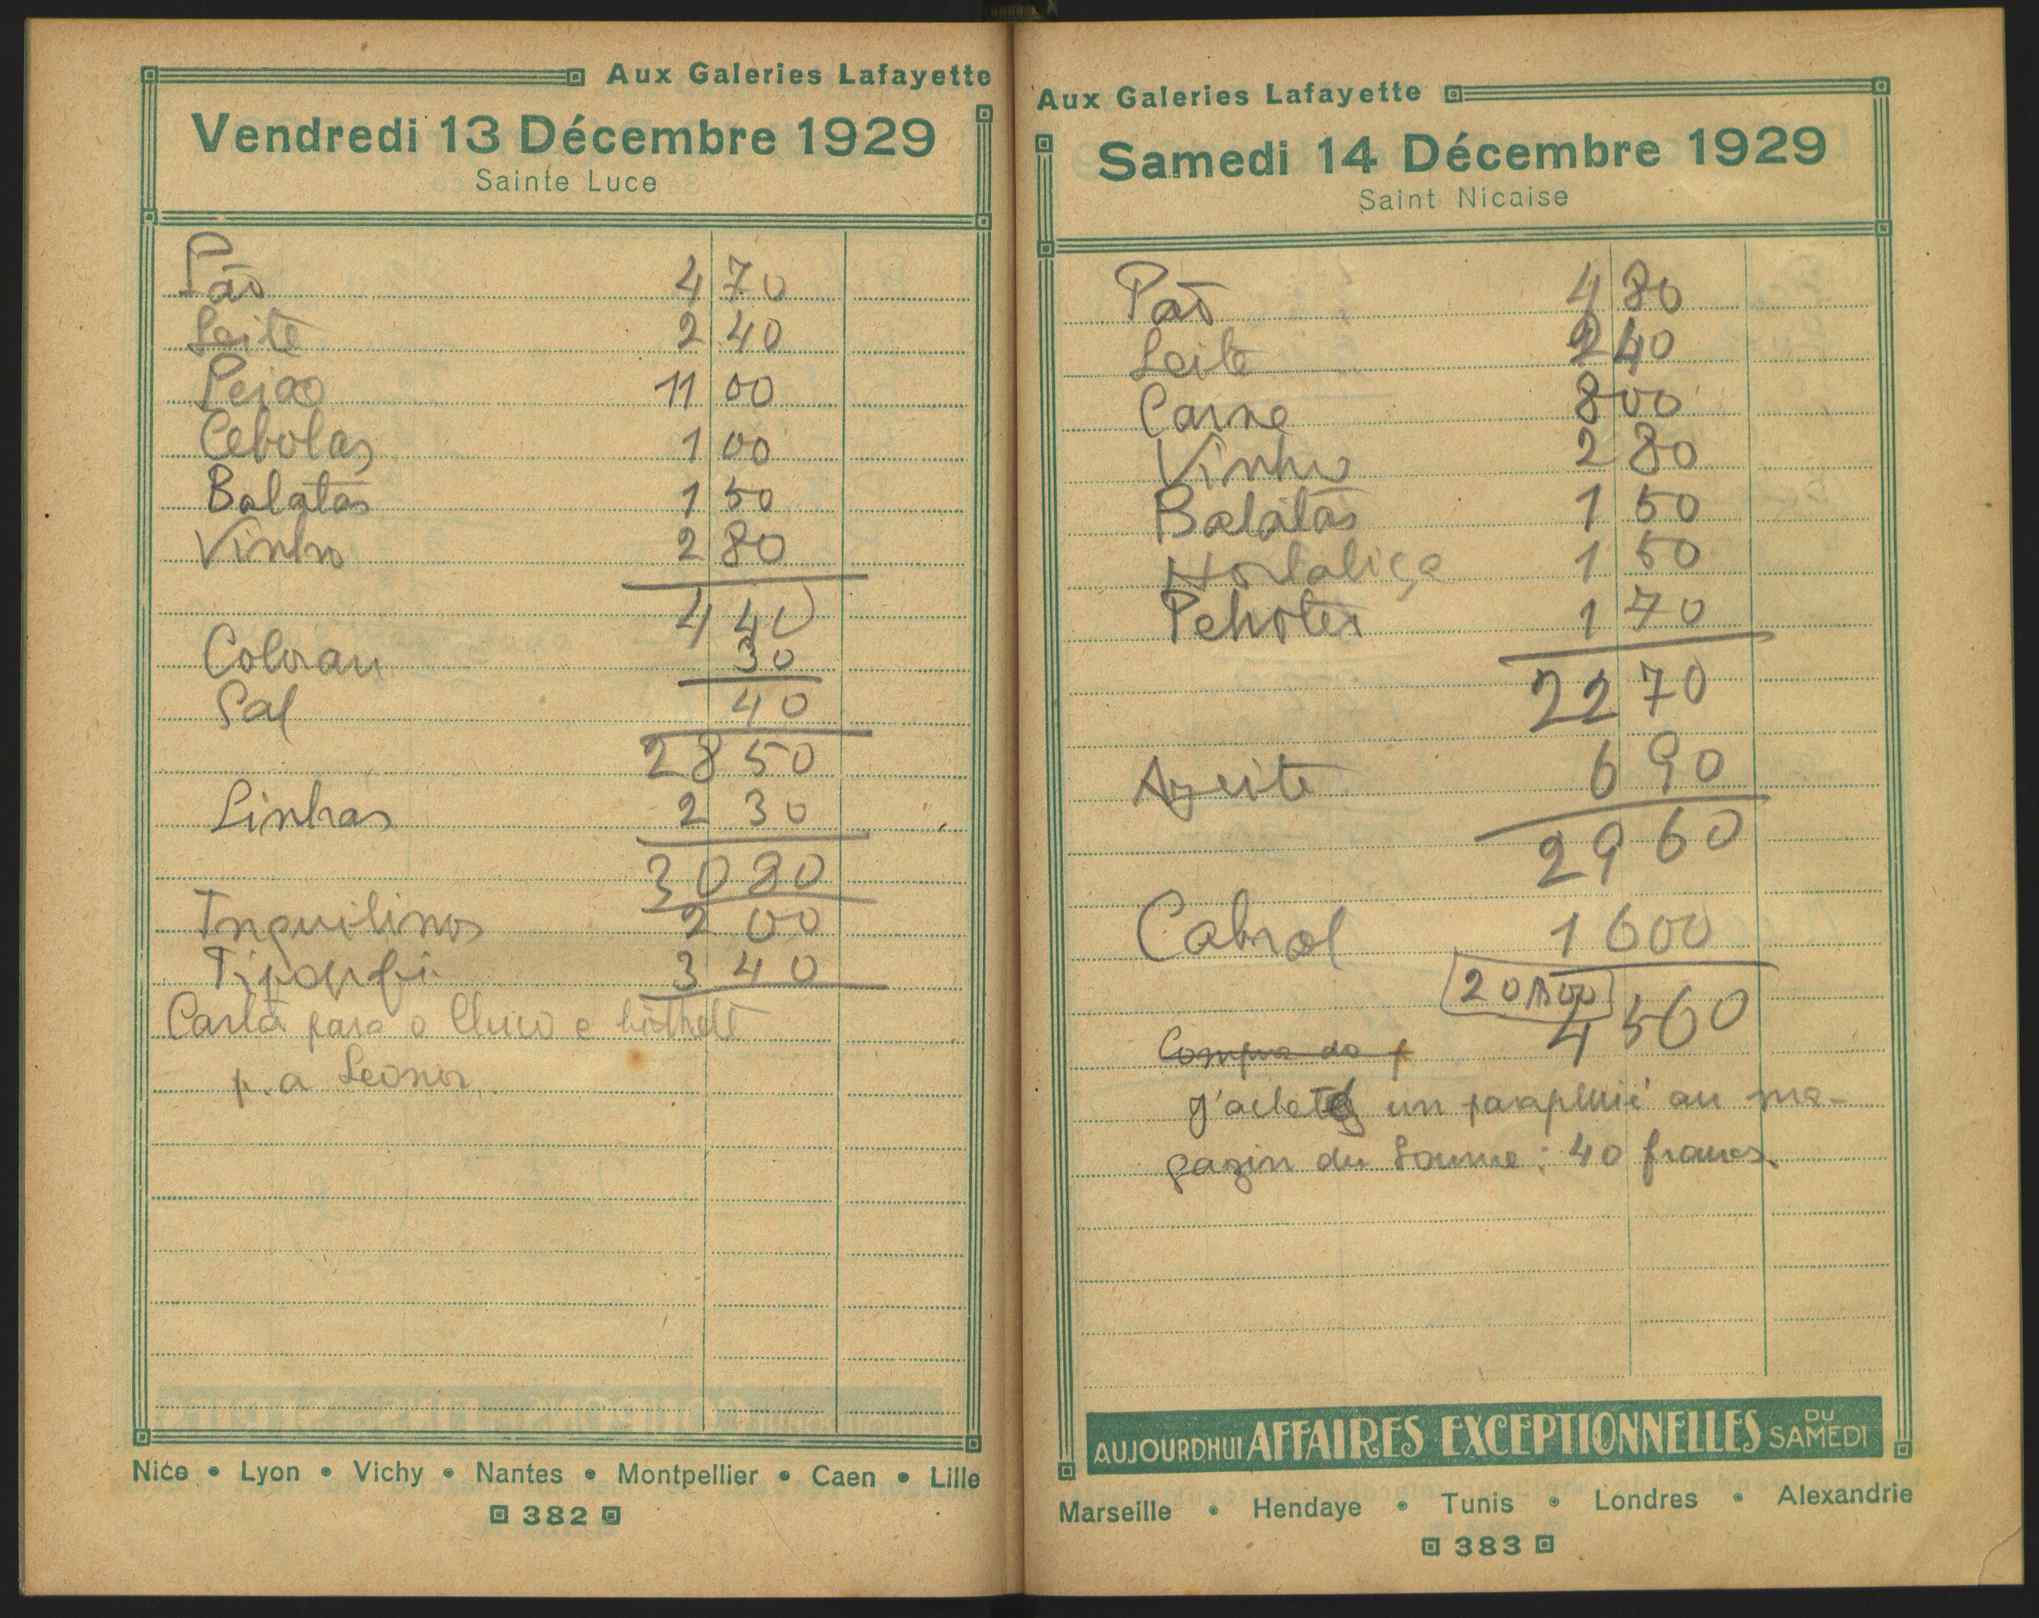 Aux Galeries Lafayette
Vendredi 13 Décembre 1929
Sainte Luce
Pão 4 70
Leite 2 40
Peixe 11 00
Cebolas 1 00
Batatas 1 50
Vinho 2 80
4 40
Colorau 30
Sal 40
28 50
Linhas 2 30
30 80
Inquilinos 2 00
3 40
Carta para o Chico e
p. a Leonor
Nice • Lyon • Vichy • Nantes • Montpellier • Caen • Lille
382
Aux Galeries Lafayette
Samedi 14 Décembre 1929
Saint Nicaise
Pão 4 80
Leite 2 40
Carne 8 00
Vinho 2 80
Batatas 1 50
Hortaliça 1 50
1 70
22 70
Azeite 6 90
29 60
Cabral 16 00
45 60
Compra do p
J'acheté un parapluie au ma-
gazin du Louvre: 40 francs.
AUJOURD'HUI AFFAIRES EXCEPTIONNELLES DU SAMEDI
Marseille • Hendaye • Tunis • Londres • Alexandrie
383